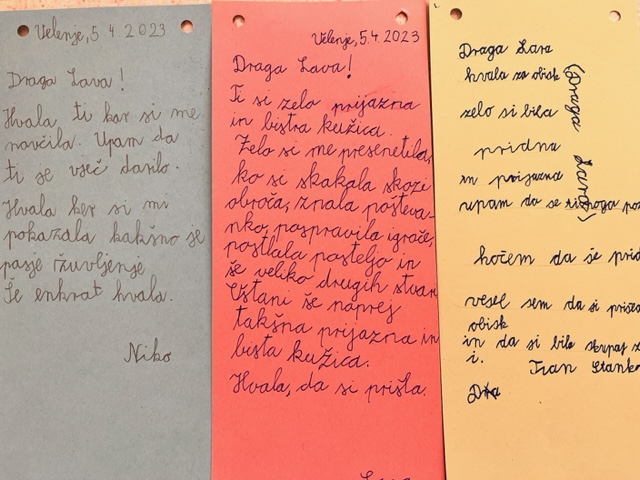 Velenje, 5. 4. 2023
Draga Lava!
Hvala ti kar si me
navčila. Upam da
ti je všeč darilo.
Hvala ker si mi
pokazala kakšno je
pasje žuvljenje
Še enkrat hvala.
Niko
Velenje, 5. 4. 2023
Draga Lava!
Ti si zelo prijazna
in bistra kužica.
Zelo si me presenetila,
ko si skakala skozi
obroča, znala poštevan-
nko, pospravila igrače,
postlala posteljo in
še veliko drugih stvari
Ustani še naprej
takšna prijazna in
bista kužica.
Hvala, da si prišla.
Draga Lara
hvala za obisk
zelo si bila
pridna
in prijazna
upam da se
hočem da še prid
vesel sem da si
obisk
in da si bila
i. Tian
(Draga Lara)